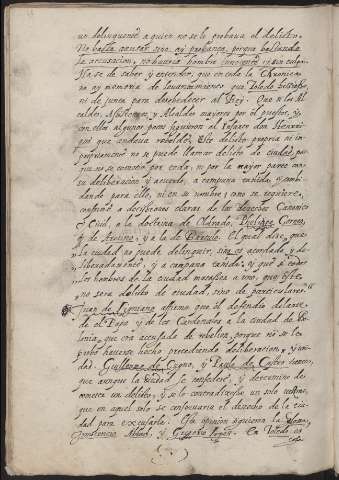 un delinquente a quien no se le probava el delicto.
No basta acusar sino ay probança, porque bastando
la accusacion, no havria hombre innocente ni sin culpa.
Ha se de saber y entender, que en toda la Chronica
no ay memoria de levantamiento que Toledo hiziesse
ni de junta para desobedecer al Rey. Que si los Al
caldes, Alcaldes mayores por el pueblo, y
con ellos algunos pocos siguieron al Infante don Henri
que que andava rebelde. Este delicto propria ni im
propriamente no se puede llamar delicto de ciudad, por
que no se cometio por toda, ni por la mayor parte con
su deliberacion y acuerdo a campana tañida, y embi
ando para ello, ni en su nombre, como se requiere,
conforme a decissiones claras de los derechos Canonico
y Civil, a la doctrina de Oldrado, Philippo Corneo,
y de Aretino, y a la de Bartulo. El qual dize, que
la ciudad no puede delinquir, sino es acordada y de
liberadamente, y a campana tañida. Y que si todos
los hombres de la ciudad matassen a uno, que este
no sera delicto de ciudad, sino de particulares.
Juan de Ligniano affirma que el defendio delante
de el Papa y de los Cardenales a la ciudad de Bo
lonia, que era accusada de rebelion, porque no se le
probo haverse hecho precediendo deliberacion, y uni
dad. Guillermo de Cuneo, y Paulo de Castro tienen,
que aunque la ciudad se confedere, y determine de
cometer un delicto, y solo contradixesse un solo vezino,
que en aquel solo se conservaria el derecho de la ciu
dad para excusarla. Esta opinion siguieron
y Gregorio Lopez. En Toledo es